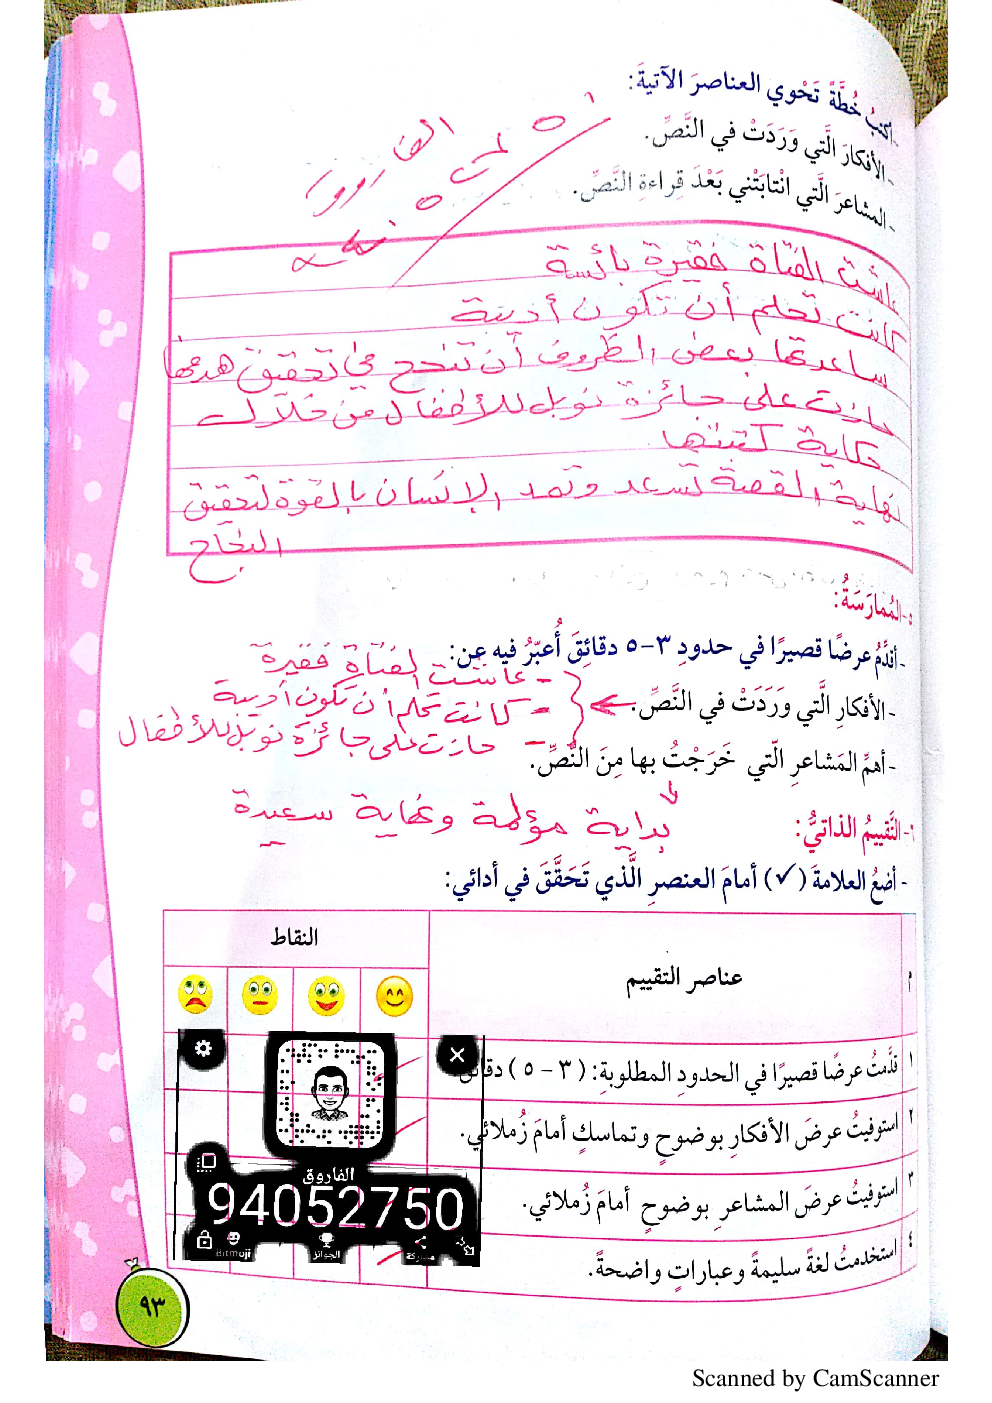 - أكتبُ خُطَّةً تَحْوي العناصرَ الآتيةَ:
- الأفكارَ الَّتي وَرَدَتْ في النَّصِّ.
- المشاعرَ الَّتي انْتابَتْني بَعْدَ قِراءةِ النَّصِّ.
عاشت الفتاة فقيرة بائسة
كانت تحلم أن تكون أديبة
ساعدتها بعض الظروف أن تنجح في تحقيق هدفها
حازت على جائزة نوبل للأطفال من خلال
حكاية كتبتها
نهاية القصة تسعد وتمد الإنسان بالقوة لتحقيق
النجاح
٥- المُمارَسَةُ:
- أقدِّمُ عرضًا قصيرًا في حدودِ ٣-٥ دقائِقَ أُعبّرُ فيه عن:
- عاشت الفتاة فقيرة
- الأفكارِ الَّتي وَرَدَتْ في النَّصِّ.
- كانت تحلم أن تكون أديبة
- حازت على جائزة نوبل للأطفال
- أهمِّ المَشاعرِ الَّتي خَرَجْتُ بها مِنَ النَّصِّ.
بداية مؤلمة ونهاية سعيدة
٦- التَّقييمُ الذاتيُّ:
- أضعُ العلامةَ (✓) أمامَ العنصرِ الَّذي تَحَقَّقَ في أدائي:
م
عناصر التقييم
النقاط
١ قدَّمتُ عرضًا قصيرًا في الحدودِ المطلوبةِ: (٣ - ٥) دقائق.
٢ استوفيتُ عرضَ الأفكارِ بوضوحٍ وتماسكٍ أمامَ زُملائي.
٣ استوفيتُ عرضَ المشاعرِ بوضوحٍ أمامَ زُملائي.
٤ استخدمتُ لغةً سليمةً وعباراتٍ واضحةً.
الفاروق
94052750
Bitmoji
الجوائز
مشاركة
٩٣
Scanned by CamScanner